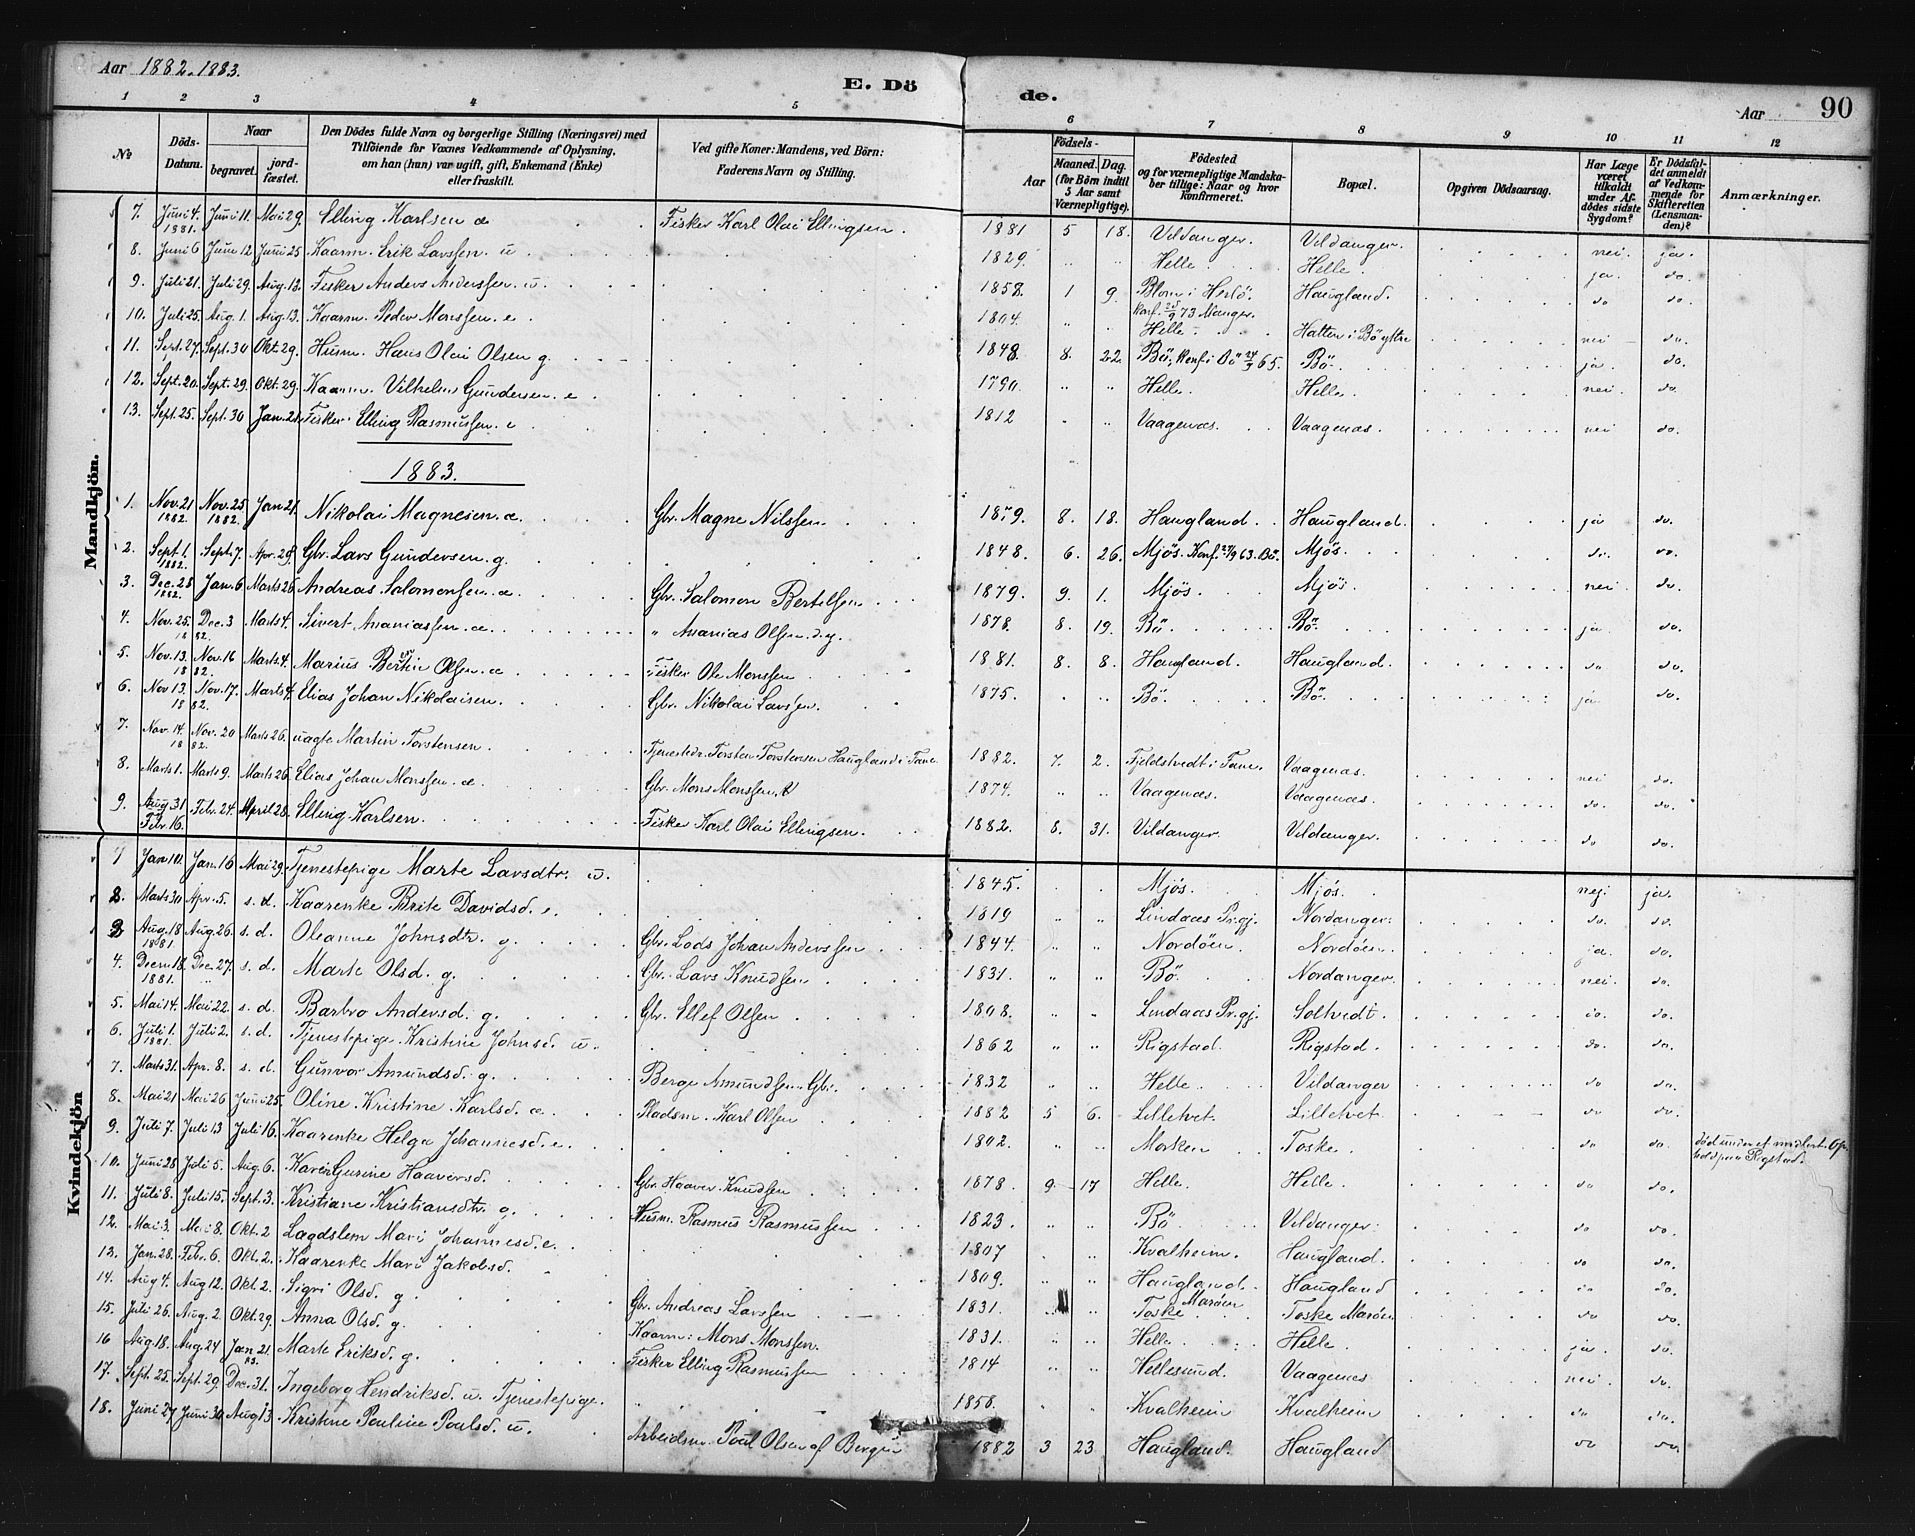 Aar 1882-1883.
E. Dö
de.
Aar
90
1 2 3 4 5 6 7 8 9 10 11 12
No Döds-Datum. Naar begravet. jord-fæstet. Den Dödes fulde Navn og borgerlige Stilling (Næringsvei) med Tilföiende for Voxnes Vedkommende af Oplysning, om han (hun) var ugift, gift, Enkemand (Enke) eller fraskilt. Ved gifte Koner: Mandens, ved Börn: Faderens Navn og Stilling. Födsels- Aar Maaned. Dag. (for Börn indtil 5 Aar samt Værnepligtige). Födested og for værnepligtige Mandska-ber tillige: Naar og hvor konfirmeret. Bopæl. Opgiven Dödsaarsag. Har Læge været tilkaldt under Af-dödes sidste Sygdom? Er Dödsfal-det anmeldt af Vedkom-mende for Skifteretten (Lensman-den)? Anmærkninger.
Mandkjön.
7. Juni 4. 1881. Juni 11. Mai 29. Elling Karlsen æ Fisker Karl Olai Ellingsen. 1881 5 18. Vildanger. Vildanger. nei. ja.
8. Juni 6 Juni 12 Juni 25 Kaarm. Erik Larssen. u 1829. " " Helle Helle. ja. do.
9. Juli 21. Juli 29. Aug. 12. Fisker Anders Anderssen. u. 1858. 1 9. Blom i Herlö. Konf. 73 Manger. Haugland. do do.
10. Juli 25. Aug. 1. Aug. 13. Kaarm. Peder Monssen. e. 1804. " " Helle. Hatten i Bö nei do.
11. Sept. 27. Sept. 30 Okt. 29. Husm. Hans Olai Olsen g. 1848 8. 22. Bö, Konf. i Bö 65. Bö. ja. do.
12. Sept. 20. Sept. 29. Okt. 29. Kaarm. Vilhelm Gundersen. e. 1790. " " Helle. Helle. nei do.
13. Sept. 25. Sept. 30 Jan. 21. Fisker Elling Rasmussen. e 1812 " " Vaagenæs. Vaagenæs. nei do.
1883.
1. Nov. 21 1882. Nov. 25 1882. Jan 21. Nikolai Magnesen. æ. Gbr. Magne Nilssen 1879. 8. 18. Haugland. Haugland. ja do.
2. Sept. 1. 1882. Sept. 7. Apr. 29. Gbr. Lars Gundersen. g. 1848. 6. 26. Mjös. Konf. 63. Bö. Mjös. do. do.
3. Dec. 28 1882. Jan. 6 Marts 26 Andreas Salomonsen. æ. Gbr. Salomon Bertelsen 1879. 9. 1. Mjös. Mjös. nei do
4. Nov. 25. 1882. Dec. 3 Marts 4. Sivert Ananiassen. æ. " Ananias Olsen. 1878. 8. 19. Bö. Bö. ja do.
5. Nov. 13. 1882. Nov. 16 Marts 4. Marius Bertin Olsen. æ Fisker Ole Monssen 1881. 8. 8. Haugland. Haugland. do do.
6. Nov 13. 1882. Nov. 17. Marts 4. Elias Johan Nikolaisen. Gbr. Nikolai Larssen. 1875. Bö. Bö. ja do.
7. Nov. 14. 1882. Nov. 20 Marts 26. uægte Martin Torstensen. Tjenestedr. Torsten Torstensen Haugland i Fane 1882. 7. 2. Fjeldstvedt i Fane. Vaagenæs. nei do.
8. Marts 1. Marts 9. Marts 26. Elias Johan Monssen. æ. Gbr. Mons Monssen. 1874. " " Vaagenæs. Vaagenæs. do. do.
9. Febr. 16. Febr. 24. April 28. Elling Karlsen. Fisker Karl Olai Ellingsen. 1882. 8. 31. Vildanger. Vildanger. do do.
Kvindekjön
1 Jan 10. Jan. 16 Mai 29. Tjenestepige Marte Larsdtr. u. 1845. Mjös. Mjös. nei. ja.
2. Marts 30 Apr. 5. s. d. Kaarenke Brite Davidsd. e. 1819 " " Lindaas Pr.gj. Nordanger. do. do.
3 Aug. 18 1881. Aug. 26. s. d. Oleanne Johnsdtr. g. Gbr. Lods Johan Anderssen 1844. " " Nordöen. Nordöen. ja. do.
4. Decem. 18. 1881. Dec. 27. s. d. Marte Olsd. g. Gbr. Lars Knudsen 1831. " " Bö. Nordanger. nei. do.
5. Mai 14. Mai 22. s. d. Barbro Andersd. g. Gbr. Ellef Olsen 1808. " " Lindaas Pr.gj. Soltvedt. do. do.
6. Juli 1. 1881. Juli 2. s. d. Tjenestepige Kristine Johnsd. u. 1862 " " Rigstad. Rigstad. do. do.
7. Marts 31. Apr. 8. s. d. Gunvor Amundsd. g. Berge Amundsen. Gbr. 1832 " " Helle. Vildanger do do.
8. Mai 21 Mai 26 Juni 25. Oline Kristine Karlsd. æ. Pladsm. Karl Olsen 1882 5 6. Lilletvet. Lilletvet. do do.
9. Juli 7. Juli 13 Juli 16. Kaarenke Helga Johannesd. e. 1802. " " Morken Toske. do do. död under et midlert. Op-hold paa Rigstad.
10. Juni 28 Juli 5. Aug. 6. Karen Gurine Haaversd. Gbr. Haaver Knudsen 1878 9 17 Helle. Helle. do do.
11. Juli 8. Juli 15. Sept. 3. Kristiane Kristiansdtr. g. Husm. Rasmus Rasmussen 1823. " " Bö Vildanger. do do.
12. Mai 3. Mai 8. Okt. 2 Lægdslem Mari Johannesd. e. 1807 Kvalheim. Haugland. do do.
13. Jan. 28. Febr. 6. Okt. 2. Kaarenke Mari Jakobsd. 1809. " " Haugland. Haugland do do.
14. Aug 4. Aug 12. Okt. 2. Sigri Olsd. g. Gbr. Andreas Larssen 1831. " Toske Maröen Toske Maröen do do.
15. Juli 26. Aug. 2. Okt. 29. Anna Olsd. g. Kaarm. Mons Monssen. 1831. " " Helle Helle. ja do.
16 Aug. 18. Aug. 24 Jan 21. 83. Marte Eriksd. g. Fisker Elling Rasmussen 1814 " " Hellesund. Vaagenæs nei. do.
17. Sept. 25. Sept. 29 Dec. 31. Ingeborg Hendriksd. u. Tjenestepige. 1858. " " Kvalheim Kvalheim do do.
18. Juni 27 Juni 30 Aug 13 Kristine Pouline Poulsd. u. Arbeidsm. Poul Olsen af Bergen 1882 3 23 Haugland. Haugland do do.